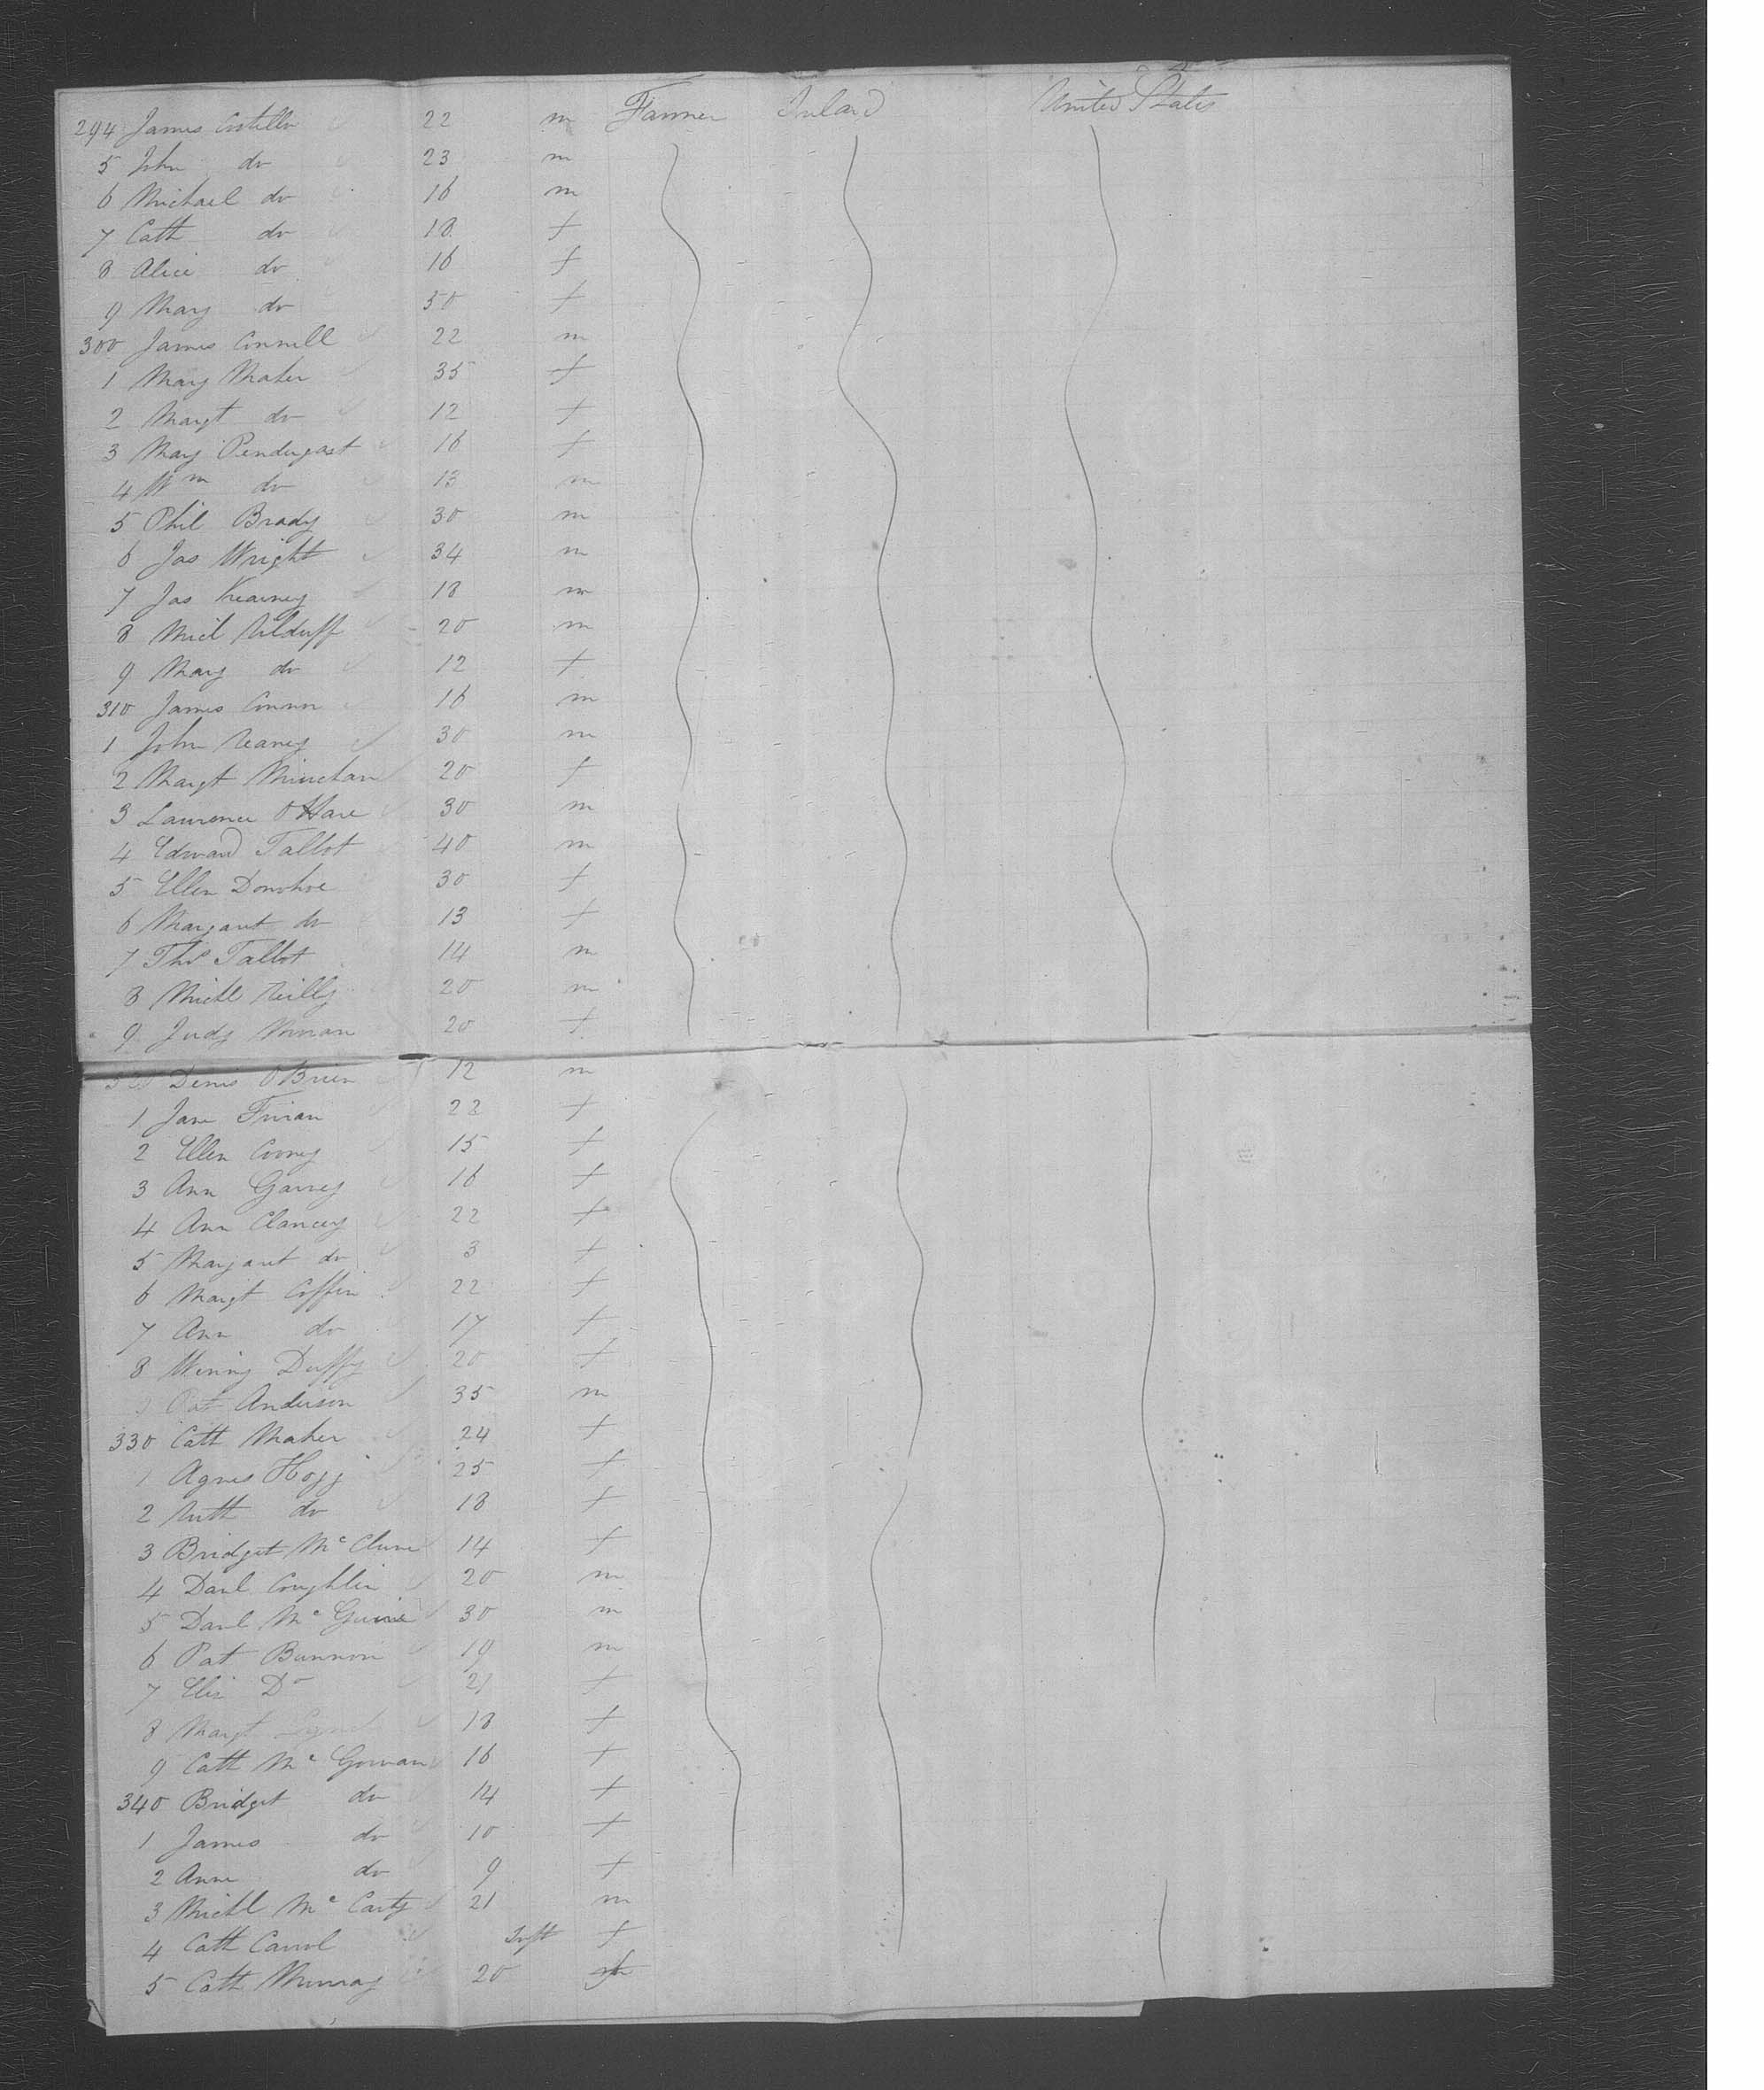 294 James Costello 22 m Farmer Ireland United States
5 John do 23 m
6 Michael do 16 m
7 Cath do 18 f
8 Alice do 16 f
9 Mary do 50 f
300 James Connell 22 m
1 Mary Maher 35 f
2 Margt do 12 f
3 Mary Pendergast 16 f
4 Wm do 13 m
5 Phil Brady 30 m
6 Jas Wright 34 m
7 Jas Kearney 18 m
8 Micl Kilduff 20 m
9 Mary do 12 f
310 James Connor 16 m
1 John 30 m
2 Margt Minchan 20 f
3 Laurence O Hare 30 m
4 Edward Talbot 40 m
5 Ellen Donohoe 30 f
6 Margaret do 13 f
7 Thos Talbot 14 m
8 Michl Reilly 20 m
9 Judy 20 f
320 Denis O Brien 12 m
1 Jane 22 f
2 Ellen Cooney 15 f
3 Ann Garvey 16 f
4 Ann Clancey 22 f
5 Margaret do 3 f
6 Margt Coffin 22 f
7 Ann do 17 f
8 Winny Duffy 20 f
9 Pat Anderson 35 m
330 Cath Maher 24 f
1 Agnes Hogg 25 f
2 Ruth do 18 f
3 Bridget Mc Clune 14 f
4 Danl Coughlin 20 m
5 Danl Mc Guire 30 m
6 Pat Bannon 19 m
7 Eliz Do 21 f
8 Margt 18 f
9 Cath Mc Gowan 16 f
340 Bridget do 14 f
1 James do 10 f
2 Anne do 9 f
3 Michl Mc Carty 21 m
4 Cath Carrol Inft f
5 Cath Murray 20 f